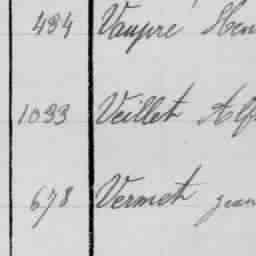 484 Vaupré Hen
1093 Veillet Alf
678 Vermot Jean